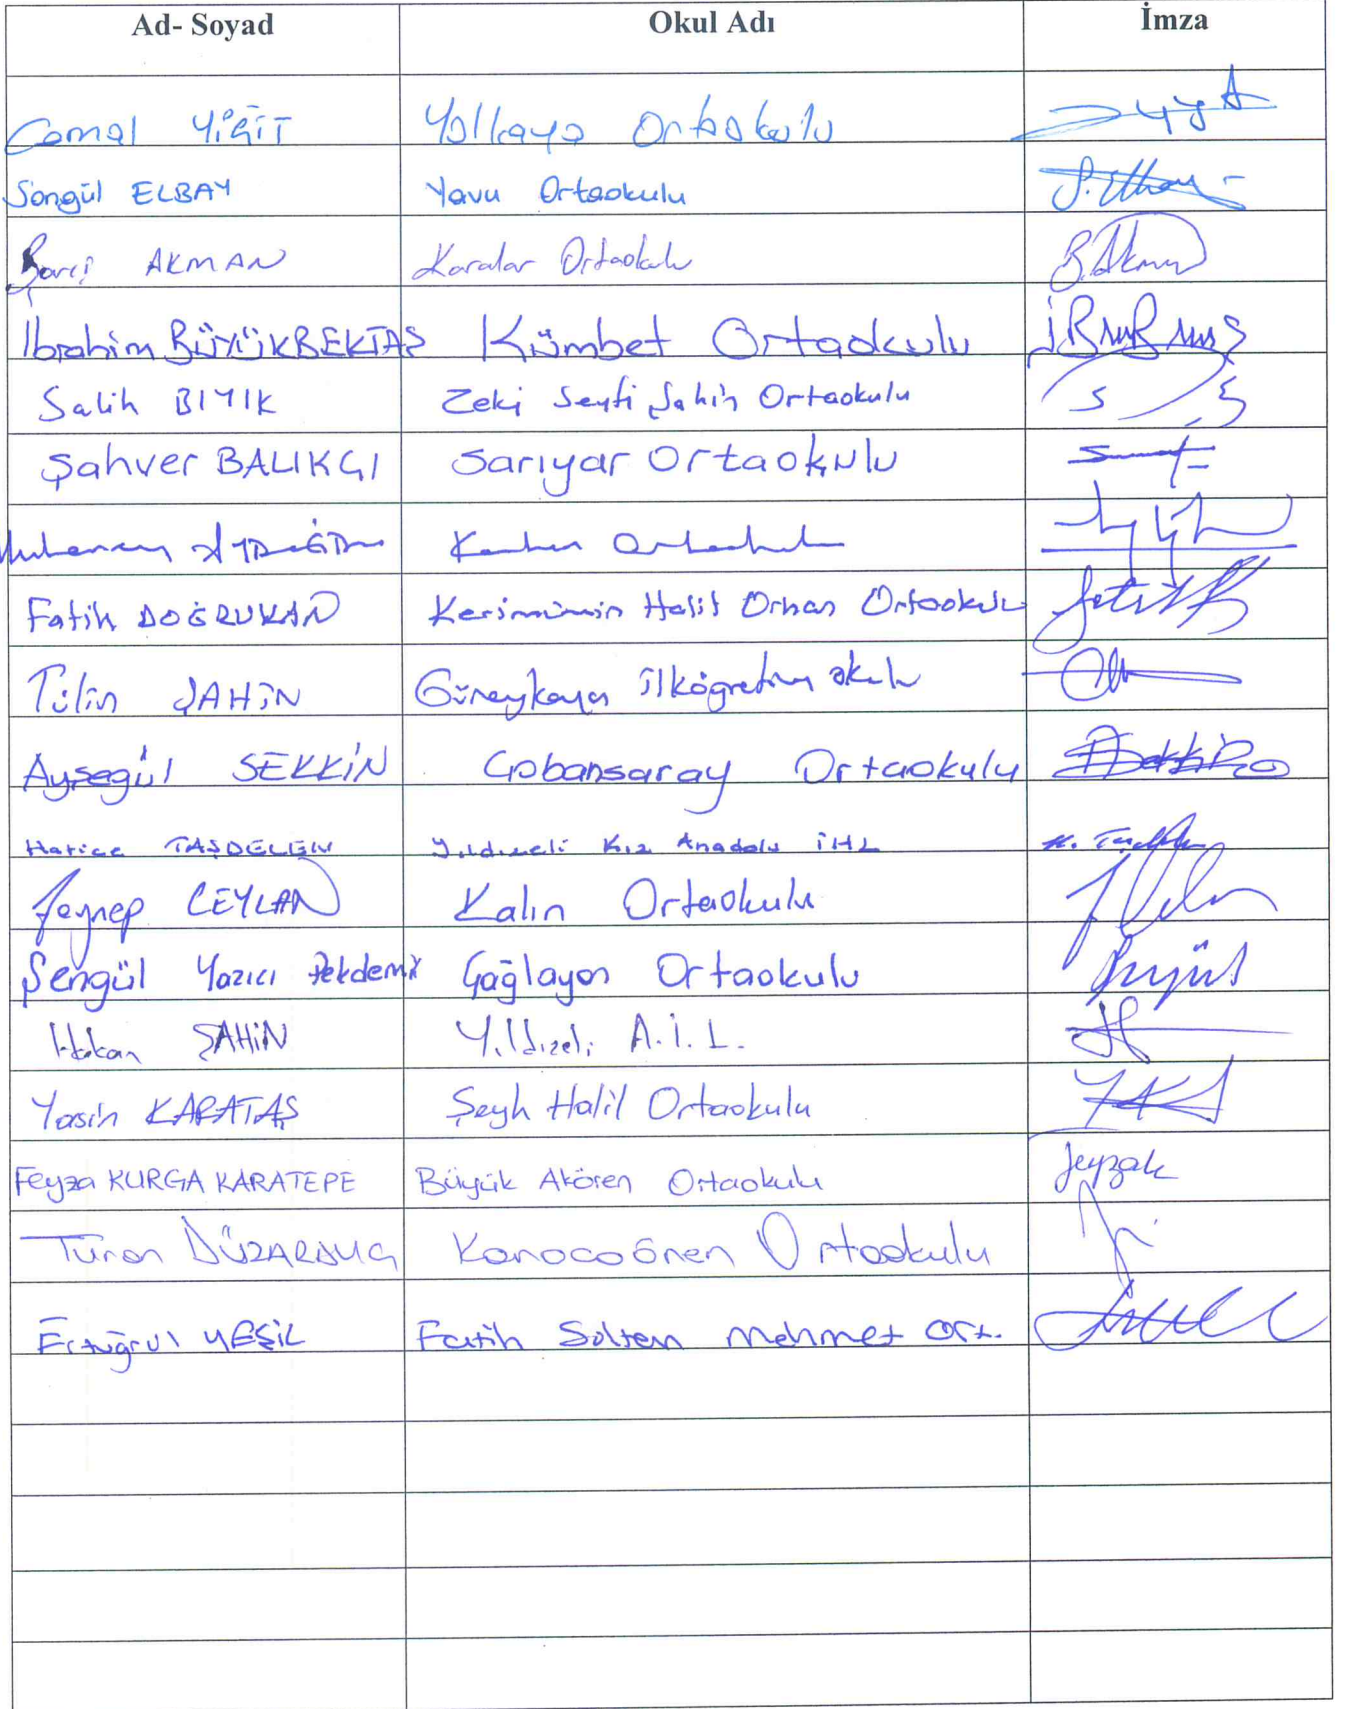 Ad- Soyad Okul Adı İmza
Cemal YİĞİT Yolkaya Ortaokulu
Songül ELBAY Yavu Ortaokulu
Barış AKMAN Karalar Ortaokulu B.Akman
İbrahim BÜYÜKBEKTAŞ Kümbet Ortaokulu
Salih BIYIK Zeki Seyfi Şahin Ortaokulu
Şahver BALIKÇI Sarıyar Ortaokulu
Ortaokulu
Fatih DOĞRUKAN Kerimümin Halil Orhan Ortaokulu
Tülin ŞAHİN Güneykaya ilköğretim okulu
Ayşegül SEKKİN Çobansaray Ortaokulu
Hatice TAŞDELEN Yıldızeli Kız Anadolu İHL
Zeynep CEYLAN Kalın Ortaokulu
Şengül Yazıcı Pekdemir Çağlayan Ortaokulu
Hakan ŞAHİN Yıldızeli A.İ.L.
Yasin KARATAŞ Şeyh Halil Ortaokulu
Feyza KURGA KARATEPE Büyük Akören Ortaokulu Feyzak
Turan Ortaokulu
Ertuğrul YEŞİL Fatih Sultan Mehmet Ort.